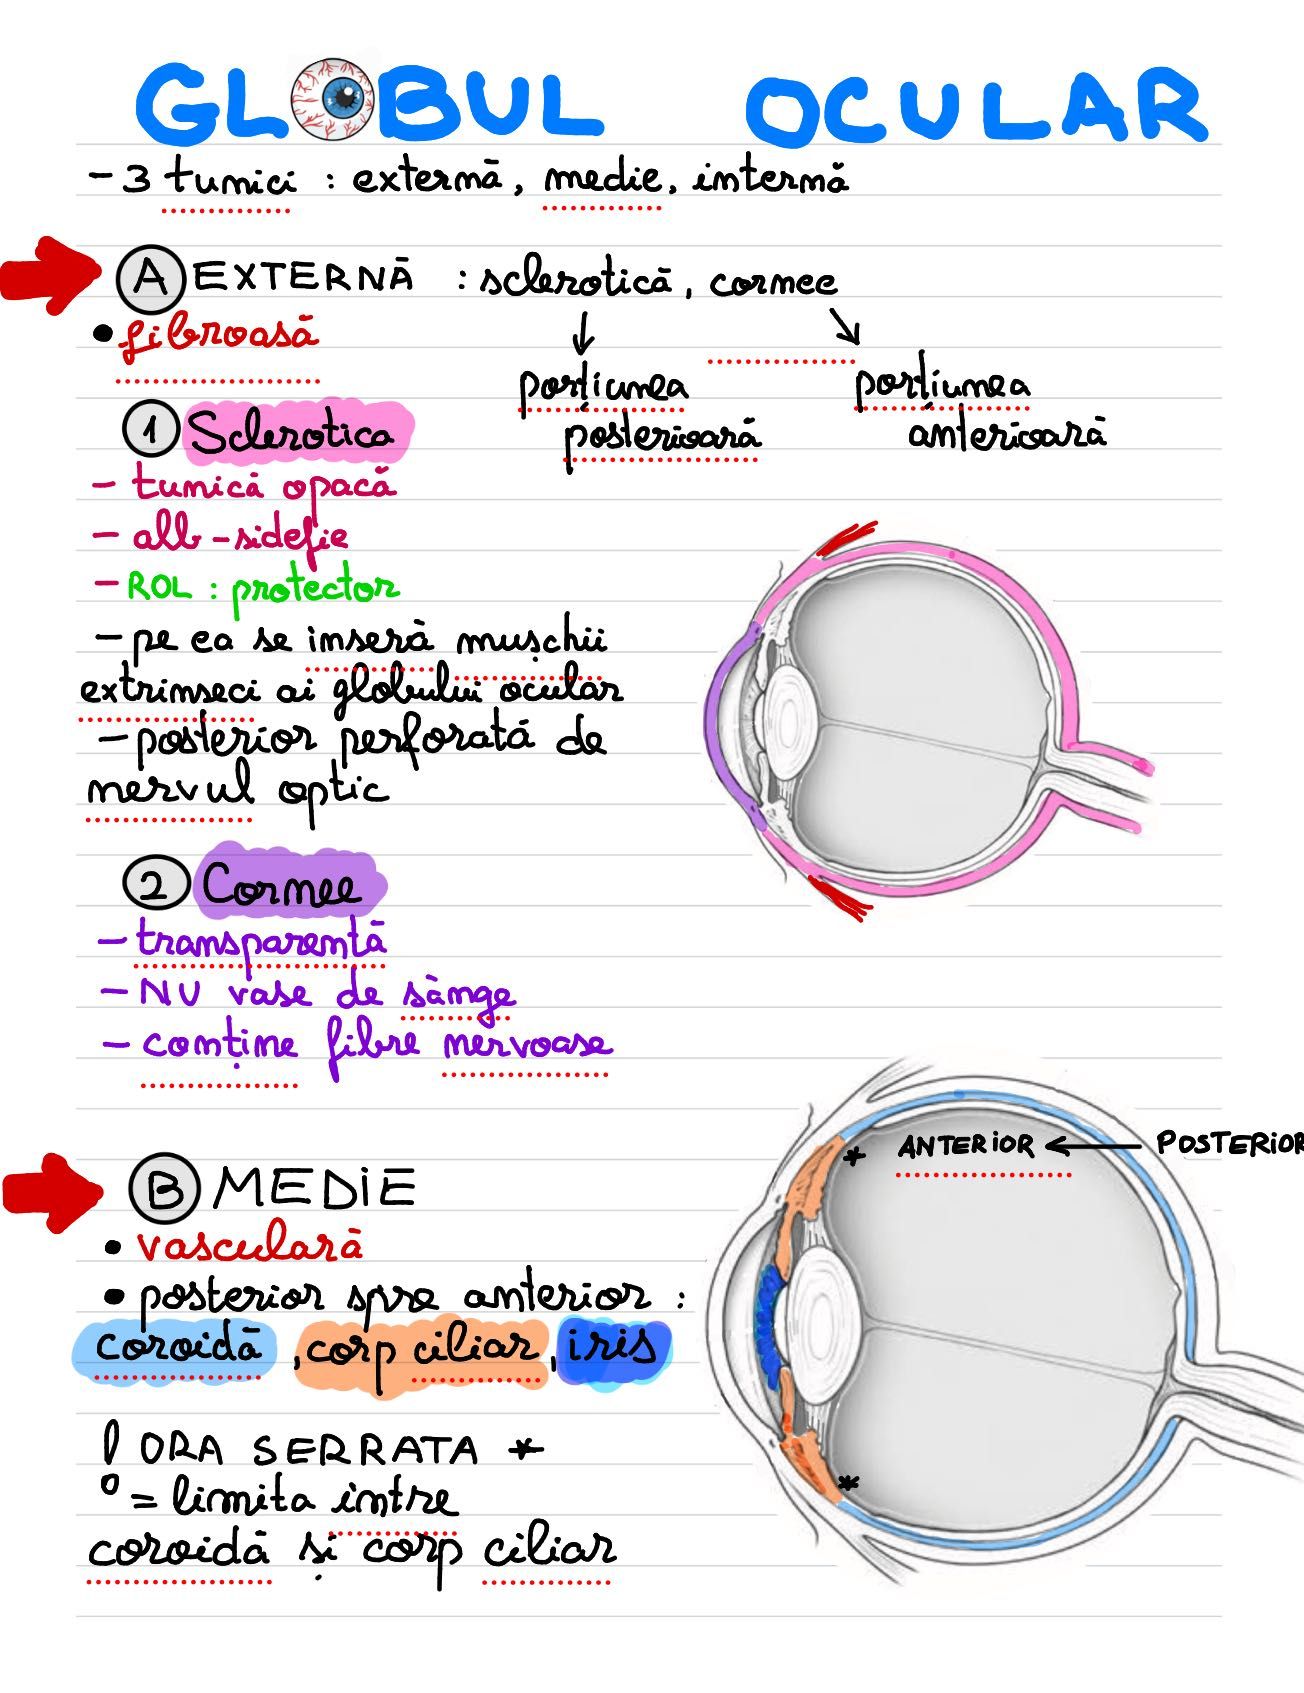 GLOBUL OCULAR
- 3 tunici : externă, medie, internă
A EXTERNĂ : sclerotică, cornee
• fibroasă
porțiunea posterioară
porțiunea anterioară
1 Sclerotica
- tunică opacă
- alb-sidefie
- ROL : protector
- pe ea se inseră mușchii
extrinseci ai globului ocular
- posterior perforată de
nervul optic
2 Cornee
- transparentă
- NU vase de sânge
- conține fibre nervoase
ANTERIOR ← POSTERIOR
*
B MEDIE
• vasculară
• posterior spre anterior :
coroidă, corp ciliar, iris
! ORA SERRATA *
= limita intre
*
coroidă și corp ciliar